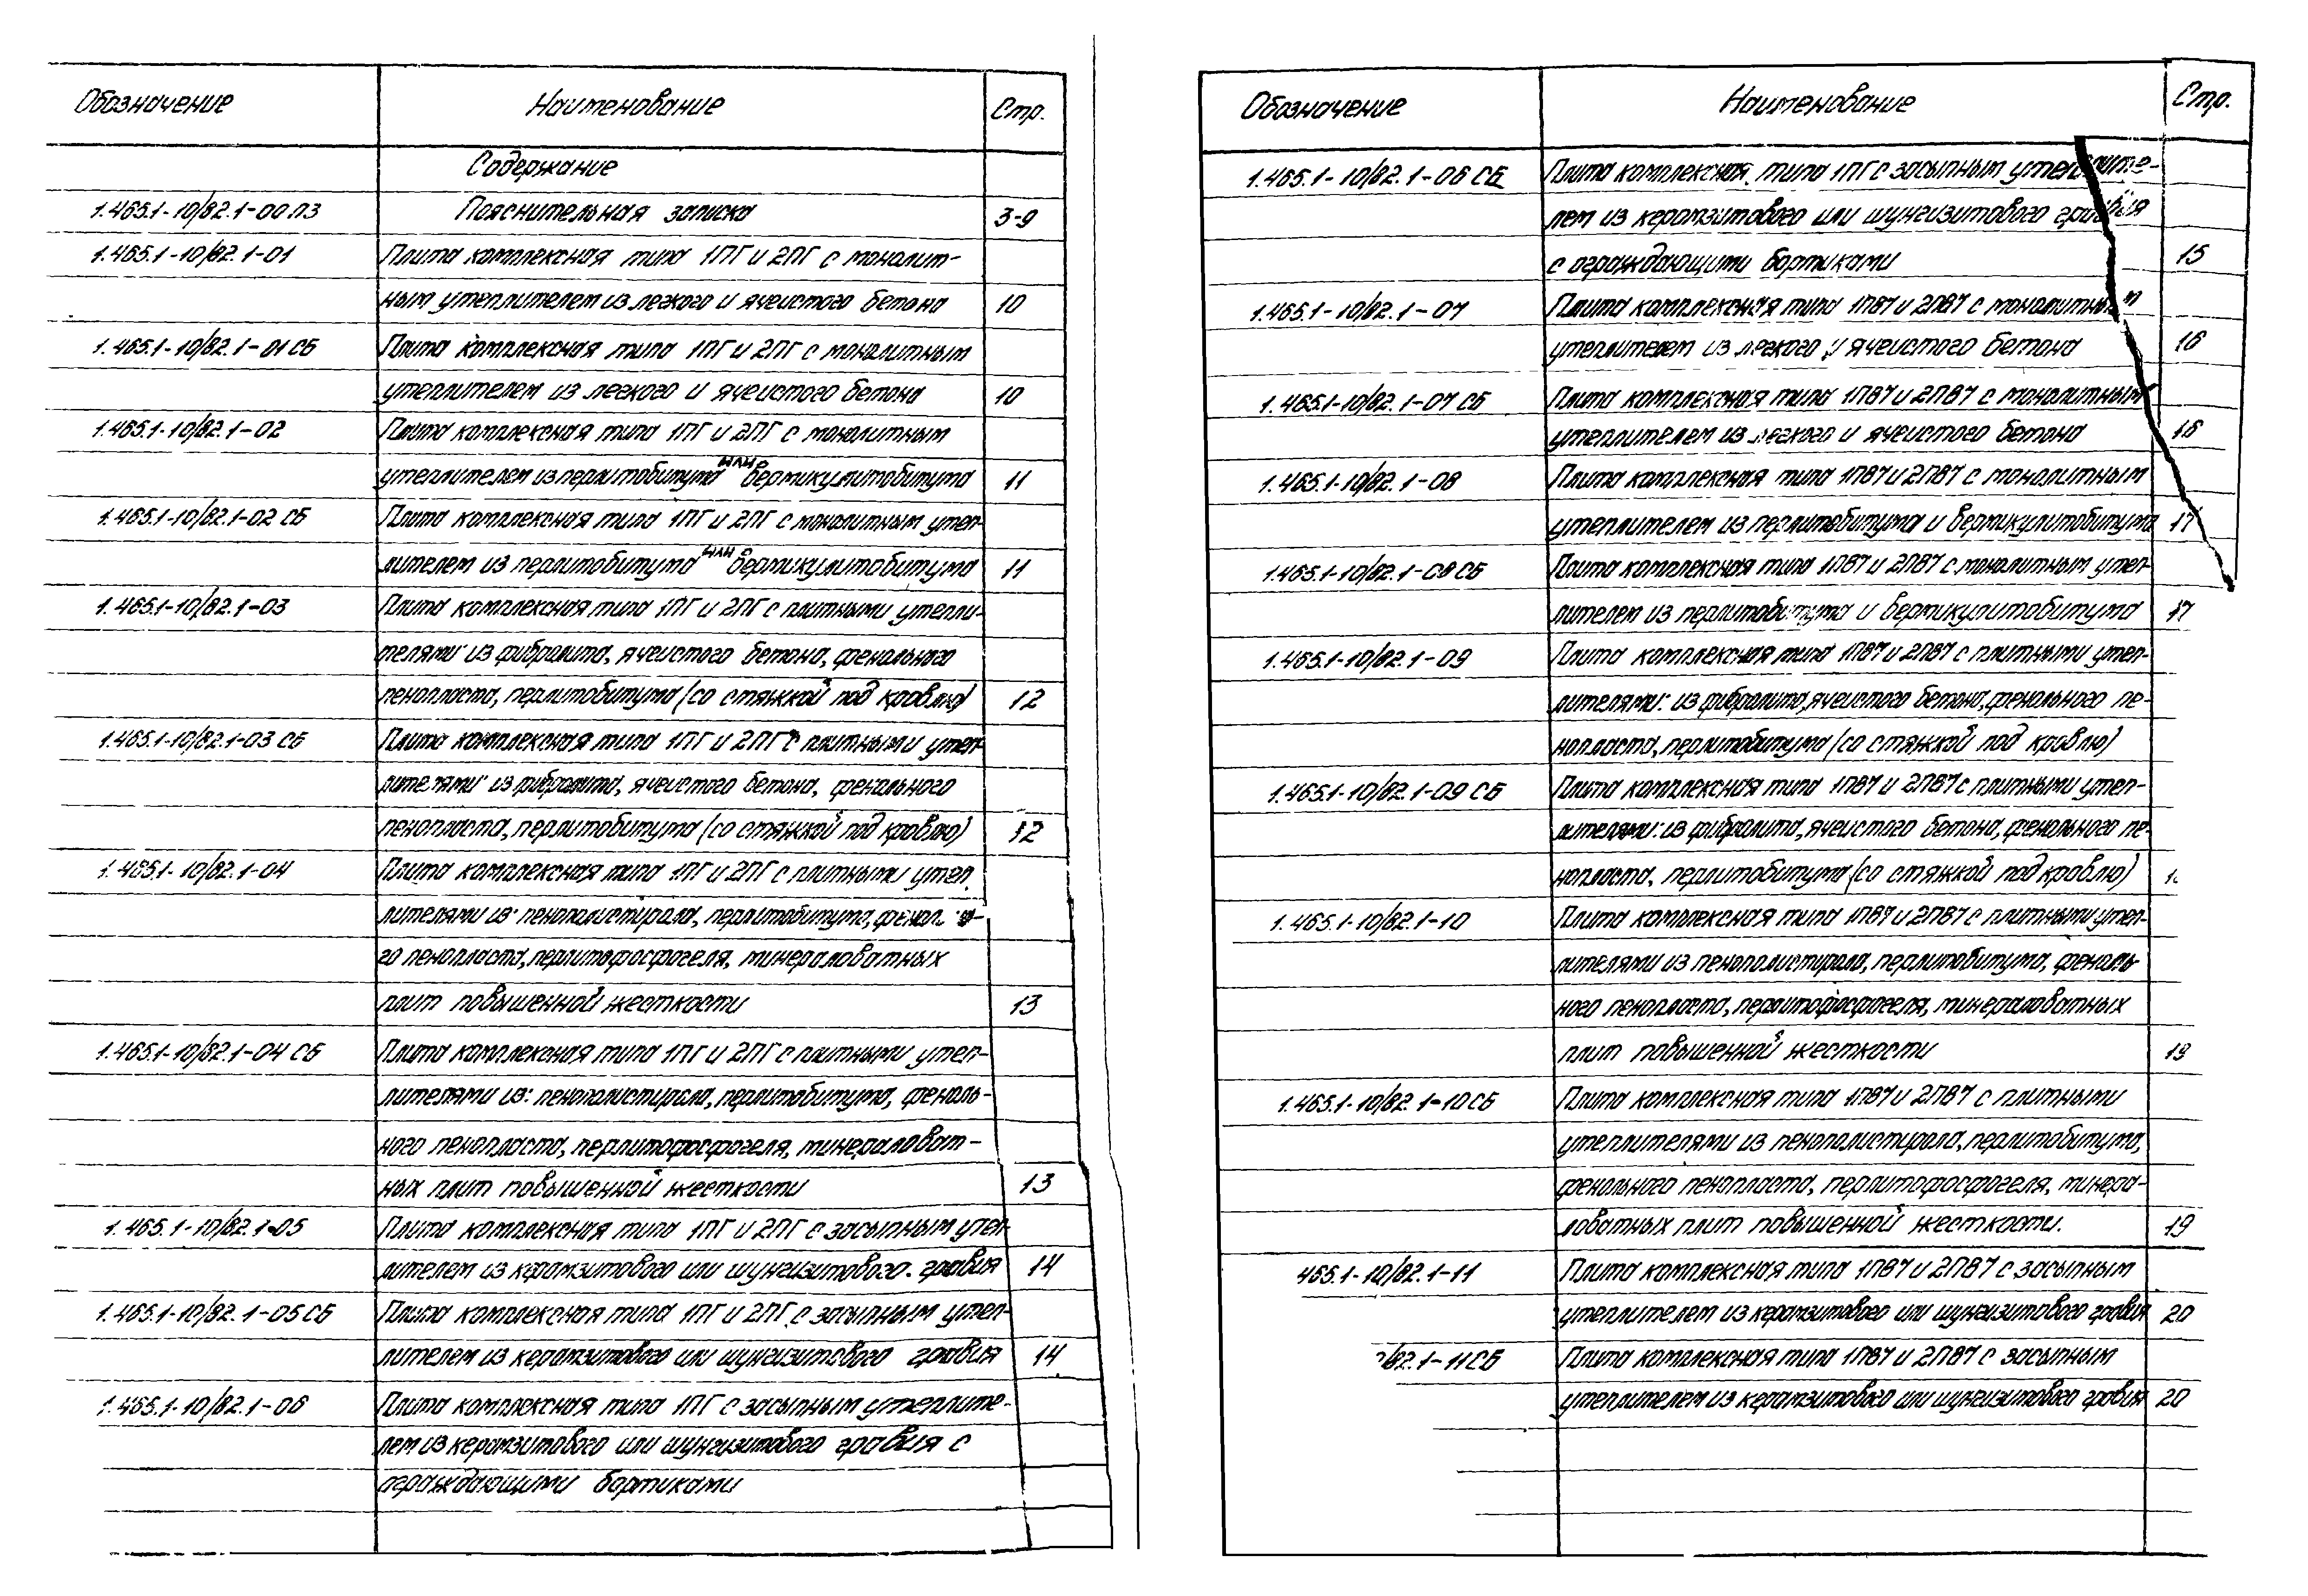 Обозначение Наименование Стр.
Содержание
1.465.1-10/82.1-00 ПЗ Пояснительная записка 3-9
1.465.1-10/82.1-01 Плита комплексная типа 1ПГ и 2ПГ с монолит-
ным утеплителем из легкого и ячеистого бетона 10
1.465.1-10/82.1-01 СБ Плита комплексная типа 1ПГ и 2ПГ с монолитным
утеплителем из легкого и ячеистого бетона 10
1.465.1-10/82.1-02 Плита комплексная типа 1ПГ и 2ПГ с монолитным
утеплителем из перлитобитума или вермикулитобитума 11
1.465.1-10/82.1-02 СБ Плита комплексная типа 1ПГ и 2ПГ с монолитным утеп-
лителем из перлитобитума или вермикулитобитума 11
1.465.1-10/82.1-03 Плита комплексная типа 1ПГ и 2ПГ с плитными утепли-
телями из фибролита, ячеистого бетона, фенольного
пенопласта, перлитобитума (со стяжкой под кровлю) 12
1.465.1-10/82.1-03 СБ Плита комплексная типа 1ПГ и 2ПГ с плитными утеп-
лителями: из фибролита, ячеистого бетона, фенольного
пенопласта, перлитобитума (со стяжкой под кровлю) 12
1.465.1-10/82.1-04 Плита комплексная типа 1ПГ и 2ПГ с плитными утеп
лителями из: пенополистирола, перлитобитума,
го пенопласта, перлитофосфогеля, минераловатных
плит повышенной жесткости 13
1.465.1-10/82.1-04 СБ Плита комплексная типа 1ПГ и 2ПГ с плитными утеп-
лителями из: пенополистирола, перлитобитума, феноль-
ного пенопласта, перлитофосфогеля, минераловат-
ных плит повышенной жесткости 13
1.465.1-10/82.1-05 Плита комплексная типа 1ПГ и 2ПГ с засыпным утеп-
лителем из керамзитового или шунгизитового. гравия 14
1.465.1-10/82.1-05 СБ Плита комплексная типа 1ПГ и 2ПГ с засыпным утеп-
лителем из керамзитового или шунгизитового гравия 14
1.465.1-10/82.1-06 Плита комплексная типа 1ПГ с засыпным утеплите-
лем из керамзитового или шунгизитового гравия с
ограждающими бортиками
Обозначение Наименование Стр.
1.465.1-10/82.1-06 СБ Плита комплексная типа 1ПГ с засыпным утеплите-
лем из керамзитового или шунгизитового гравия
с ограждающими бортиками 15
1.465.1-10/82.1-07 Плита комплексная типа 1ПВ7 и 2ПВ7 с монолитным
утеплителем из легкого и ячеистого бетона 16
1.465.1-10/82.1-07 СБ Плита комплексная типа 1ПВ7 и 2ПВ7 с монолитным
утеплителем из легкого и ячеистого бетона 16
1.465.1-10/82.1-08 Плита комплексная типа 1ПВ7 и 2ПВ7 с монолитным
утеплителем из перлитобитума и вермикулитобитума 17
1.465.1-10/82.1-08 СБ Плита комплексная типа 1ПВ7 и 2ПВ7 с монолитным утеп-
лителем из перлитобитума и вермикулитобитума 17
1.465.1-10/82.1-09 Плита комплексная типа 1ПВ7 и 2ПВ7 с плитными утеп-
лителями: из фибролита, ячеистого бетона, фенольного пе-
нопласта, перлитобитума (со стяжкой под кровлю)
1.465.1-10/82.1-09 СБ Плита комплексная типа 1ПВ7 и 2ПВ7 с плитными утеп-
лителями: из фибролита, ячеистого бетона, фенольного пе-
нопласта, перлитобитума (со стяжкой под кровлю)
1.465.1-10/82.1-10 Плита комплексная типа 1ПВ7 и 2ПВ7 с плитными утеп-
лителями из пенополистирола, перлитобитума, феноль-
ного пенопласта, перлитофосфогеля, минераловатных
плит повышенной жесткости 19
1.465.1-10/82.1-10 СБ Плита комплексная типа 1ПВ7 и 2ПВ7 с плитными
утеплителями из пенополистирола, перлитобитума,
фенольного пенопласта, перлитофосфогеля, минера-
ловатных плит повышенной жесткости. 19
465.1-10/82.1-11 Плита комплексная типа 1ПВ7 и 2ПВ7 с засыпным
утеплителем из керамзитового или шунгизитового гравия 20
/82.1-11 СБ Плита комплексная типа 1ПВ7 и 2ПВ7 с засыпным
утеплителем из керамзитового или шунгизитового гравия 20